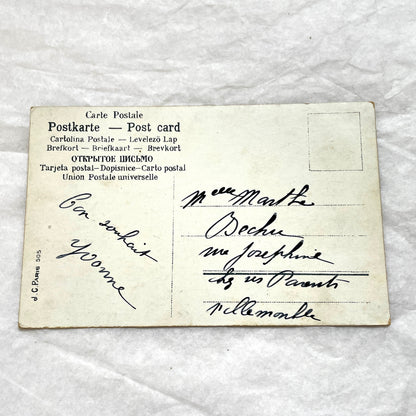 Carte Postale
Postkarte — Post card
Cartolina Postale — Levelezö Lap
Brefkort — Briefkaart — Brevkort
ОТКРЫТОЕ ПИСЬМО
Tarjeta postal—Dopisnice—Carto postal
Union Postale universelle
Bon souhait
Yvonne
J.C. PARIS 505
Melle Marthe
Bechu
rue Josephine
chez ses Parents
Villemomble